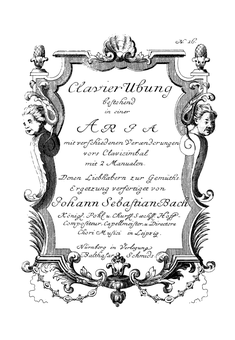 No 16.
Clavier Ubung
bestehend
in einer
ARIA
mit verschiedenen Veraenderungen
vors Clavicimbal
mit 2 Manualen.
Denen Liebhabern zur Gemüths-
Ergetzung verfertiget von
Johann Sebastian Bach
Königl. Pohl. u. Churfl. Sæchs. Hoff-
Compositeur, Capellmeister, u. Directore
Chori Musici in Leipzig.
Nürnberg in Verlegung
Balthasar Schmids